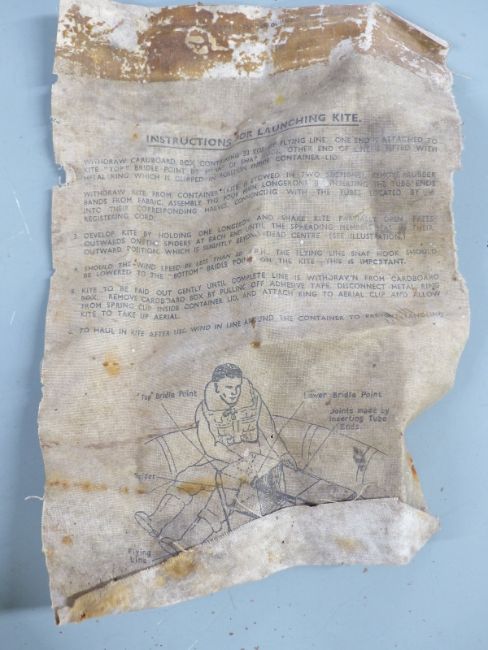 INSTRUCTIONS FOR LAUNCHING KITE.
WITHDRAW CARDBOARD BOX CONTAINING FLYING LINE, ONE END IS ATTACHED TO
KITE "TOP" BRIDLE POINT BY MEANS OF SNAP OTHER END OF LINE IS FITTED WITH
METAL RING WHICH IS CLIPPED IN POSITION INSIDE CONTAINER-LID.
WITHDRAW KITE FROM CONTAINER KITE IS STOWED IN TWO SECTIONS, REMOVE RUBBER
BANDS FROM FABRIC, ASSEMBLE THE FOUR MAIN LONGERONS BY INSERTING THE TUBE ENDS
INTO THEIR CORRESPONDING HALVES, COMMENCING WITH THE TUBES LOCATED BY
REGISTERING CORD.
3. DEVELOP KITE BY HOLDING ONE LONGERON AND SHAKE KITE PARTIALLY OPEN, PRESS
OUTWARDS ON THE SPIDERS AT EACH END UNTIL THE SPREADING MEMBERS THEIR
OUTWARD POSITION, WHICH IS SLIGHTLY BEYOND DEAD CENTRE. (SEE ILLUSTRATION.)
4. SHOULD THE WIND SPEED BE LESS THAN M.P.H. THE FLYING LINE SNAP HOOK SHOULD
BE LOWERED TO THE "BOTTOM" BRIDLE POINT ON THE KITE — THIS IS IMPORTANT.
5. KITE TO BE PAID OUT GENTLY UNTIL COMPLETE LINE IS WITHDRAWN FROM CARDBOARD
BOX. REMOVE CARDBOARD BOX BY PULLING OFF ADHESIVE TAPE, DISCONNECT METAL RING
FROM SPRING CLIP INSIDE CONTAINER LID, AND ATTACH RING TO AERIAL CLIP AND ALLOW
KITE TO TAKE UP AERIAL.
TO HAUL IN KITE AFTER USE WIND IN LINE AROUND THE CONTAINER TO PREVENT TANGLING
"Top" Bridle Point
Lower Bridle Point
Joints made by
inserting Tube
Ends.
Flying
Line